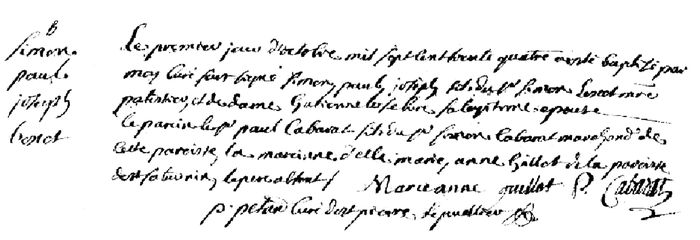 B
Simon
paul
joseph
benot
Le premier jour d'octobre mil sept cent trente quatre a esté baptizé par
moy curé soussigné Simon, paul, joseph fils du Sr Simon benot mre
patissier, et de dame Gatienne lefebvre sa legitime epouse
le parein le Sr paul Cabarat fils du Sr Simon Cabarat marchand de
cette paroisse, la mareinne delle marie, anne Guillot de la paroisse
de st saturnin, le pere absent / Marie anne guillot P. Cabarat
p. petan Curé de st pierre